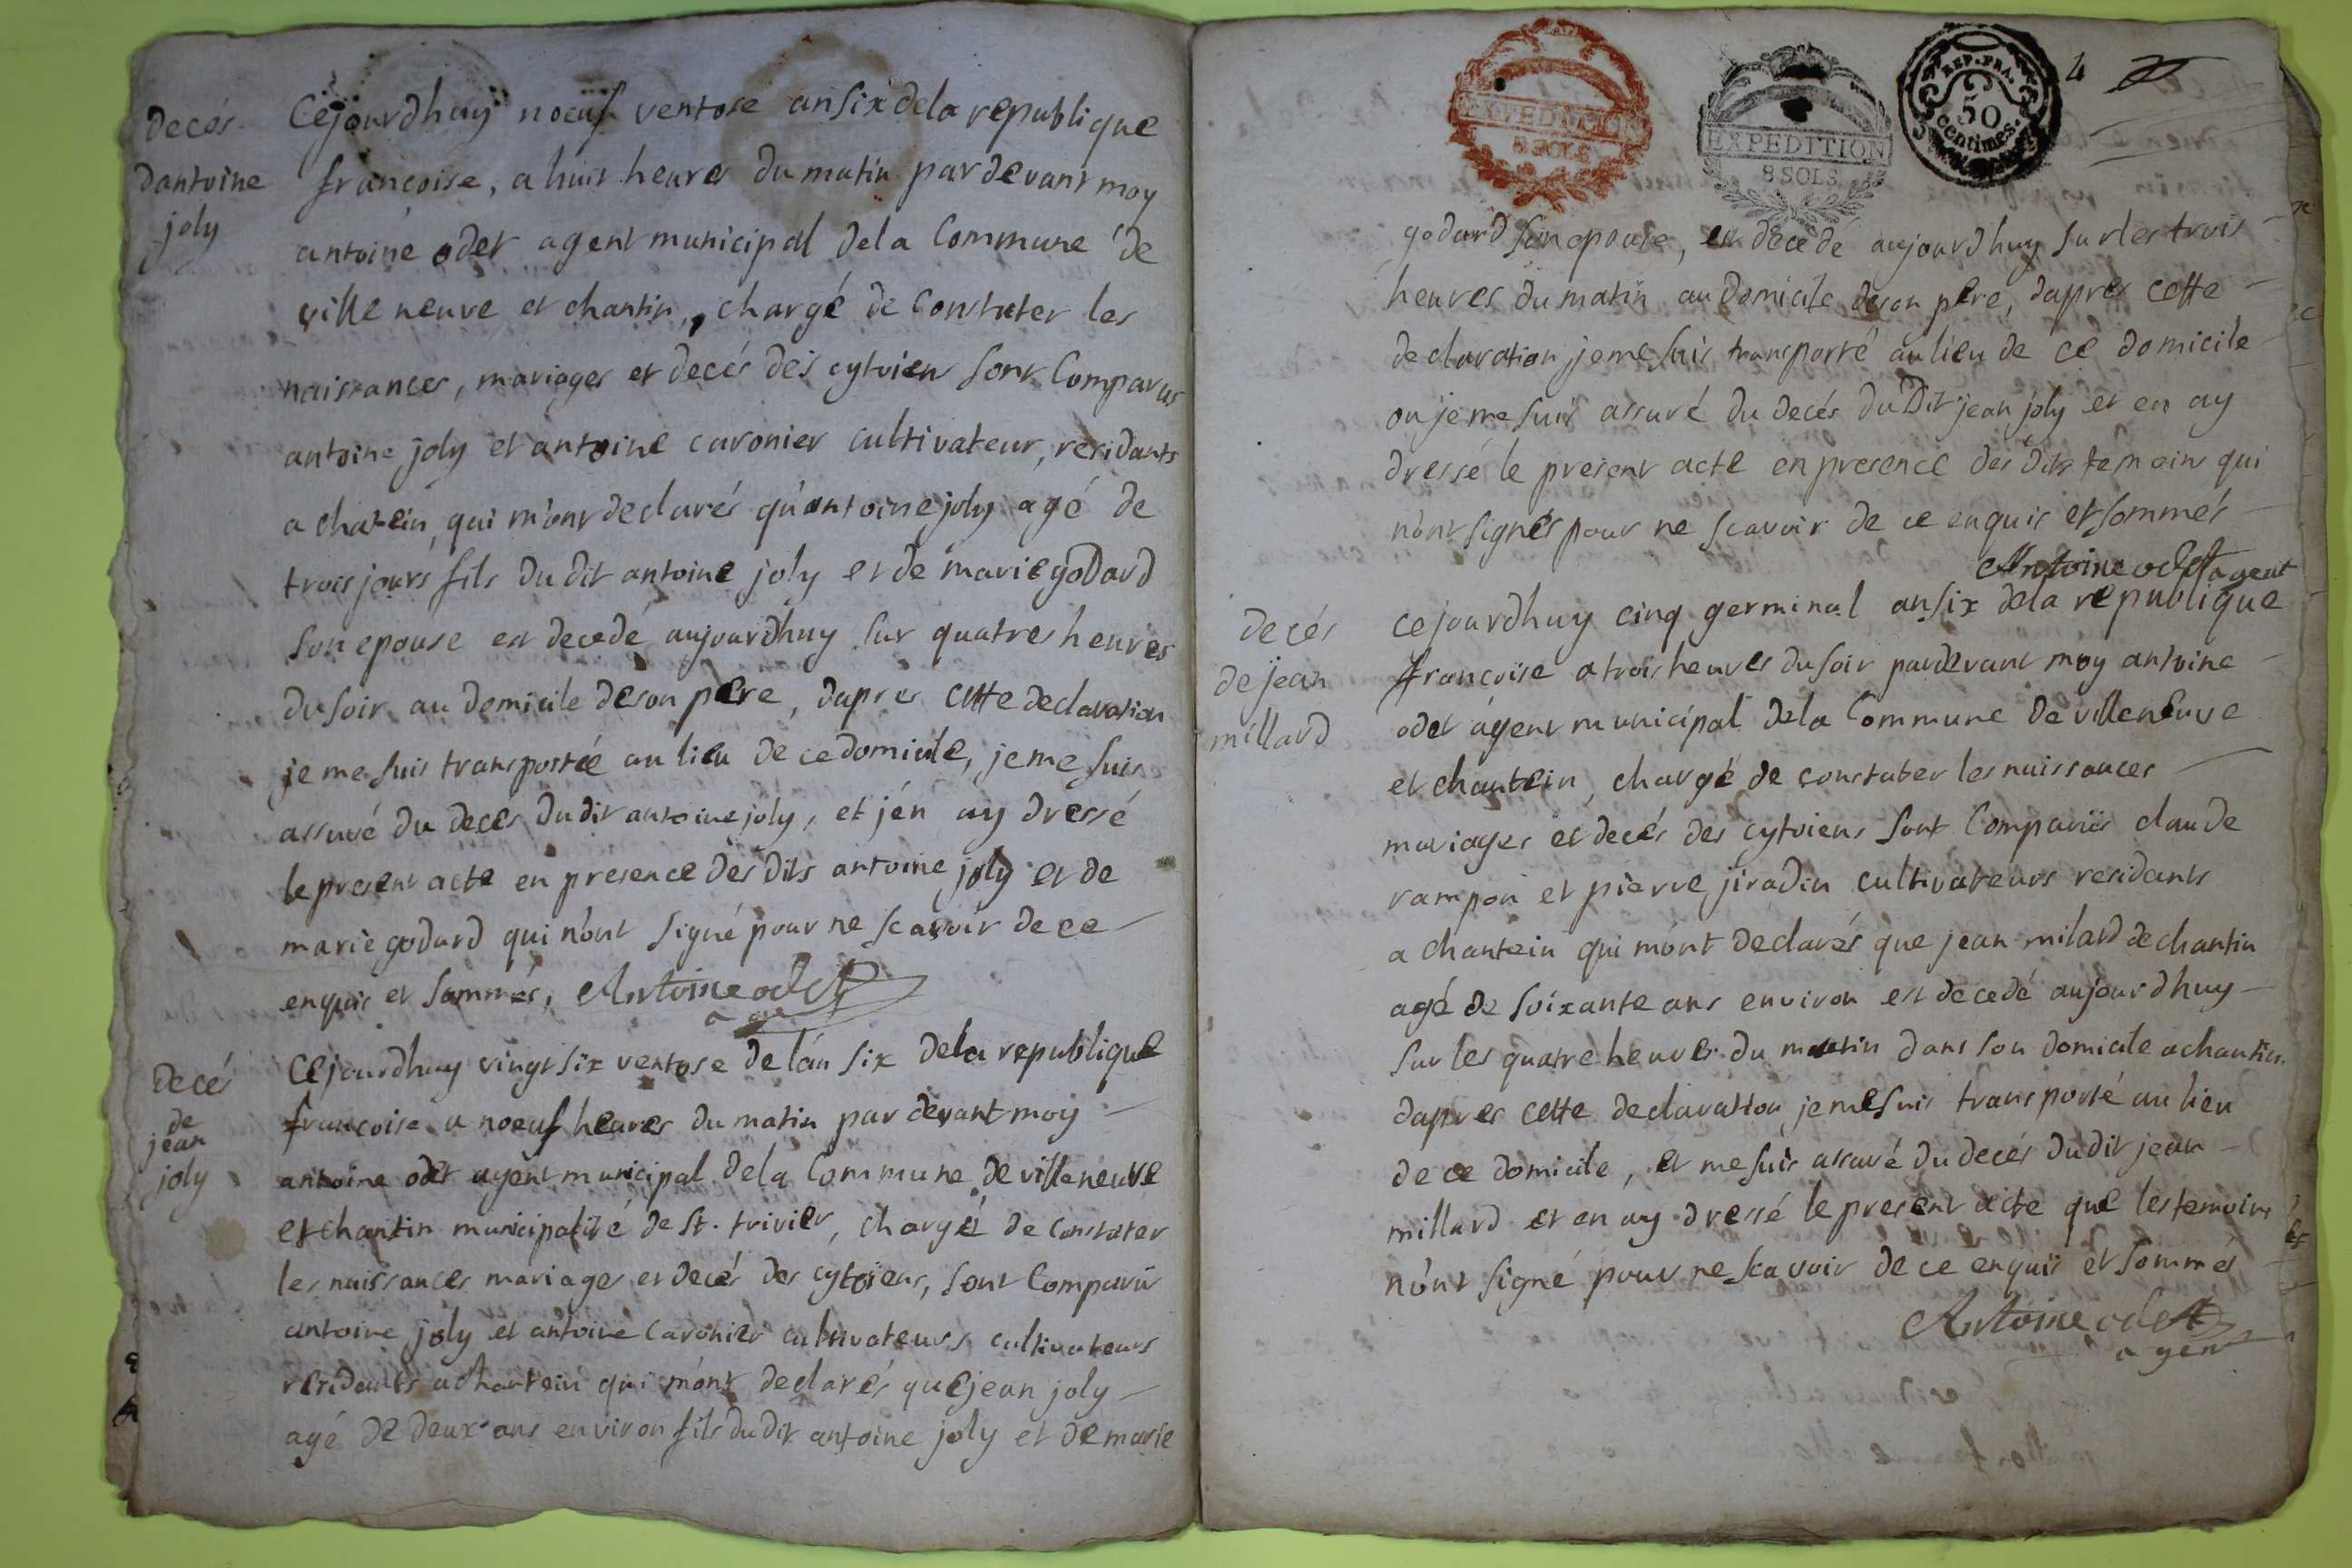 decés
dantoine
joly
Cejourdhuy noeuf ventose an six dela republique
francoise, a huit heures du matin par devant moy
antoine odet agent municipal dela Commune de
ville neuve et chantin, chargé de Constater les
naissances, mariages et decés des cytoien sont Comparus
antoine joly et antoine caronier cultivateur, residants
a chatein, qui m'ont declarés qu'antoine joly agé de
trois jours fils du dit antoine joly et de marie godard
son epouse est decedé aujourdhuy sur quatres heures
du soir au domicile deson pere, dapres cette declaration
je me suis transportée au lieu de ce domicile, je me suis
assuré du decés du dit antoine joly, et j'en ay dressé
le present acte en presence des dits antoine joly et de
marie godard qui n'ont signé pour ne scavoir de ce
enquis et sommés, Antoine odet
agent
decés
de
jean
joly
Cejourdhuy vingt six ventose de l'an six dela republique
francoise a noeuf heures du matin par devant moy
antoine odet agent municipal dela Commune de villeneuve
et chantin municipalité de St. trivier, chargé de Constater
les naissances mariages et decés des cytoiens, sont Comparus
antoine joly et antoine caronier cultivateurs cultivateurs
residants a chantein qui m'ont declarés que jean joly
agé de deux ans environ fils du dit antoine joly et de marie
EXPEDITION
8 SOLS
EXPEDITION
8 SOLS
REP. FRA.
50
centimes.
4
godard son epouse, est decedé aujourdhuy sur les trois
heures du matin au domicile deson pere, dapres cette
declaration je me suis transporté au lieu de ce domicile
ou je me suis assuré du decés du Dit jean joly et en ay
dressé le present acte en presence des dits temoins qui
n'ont signés pour ne scavoir de ce enquis et sommés
Antoine odet agent
decés
de jean
millard
cejourdhuy cinq germinal an six dela republique
francoise a trois heures du soir pardevant moy antoine
odet agent municipal dela Commune de villeneuve
et chantein, chargé de constater les naissances
mariages et decés des cytoiens sont Comparus claude
rampon et pierre jiradin cultivateurs residants
a chantein qui m'ont declarés que jean milard de chantin
agé de soixante ans environ est decedé aujourdhuy
sur les quatre heures du matin dans son domicile a chantin.
dapres cette declaration je me suis transporté au lieu
de ce domicile, et me suis assuré du decés du dit jean
millard et en ay dressé le present acte que les temoins
n'ont signé pour ne scavoir de ce enquis et sommés
Antoine odet
agent